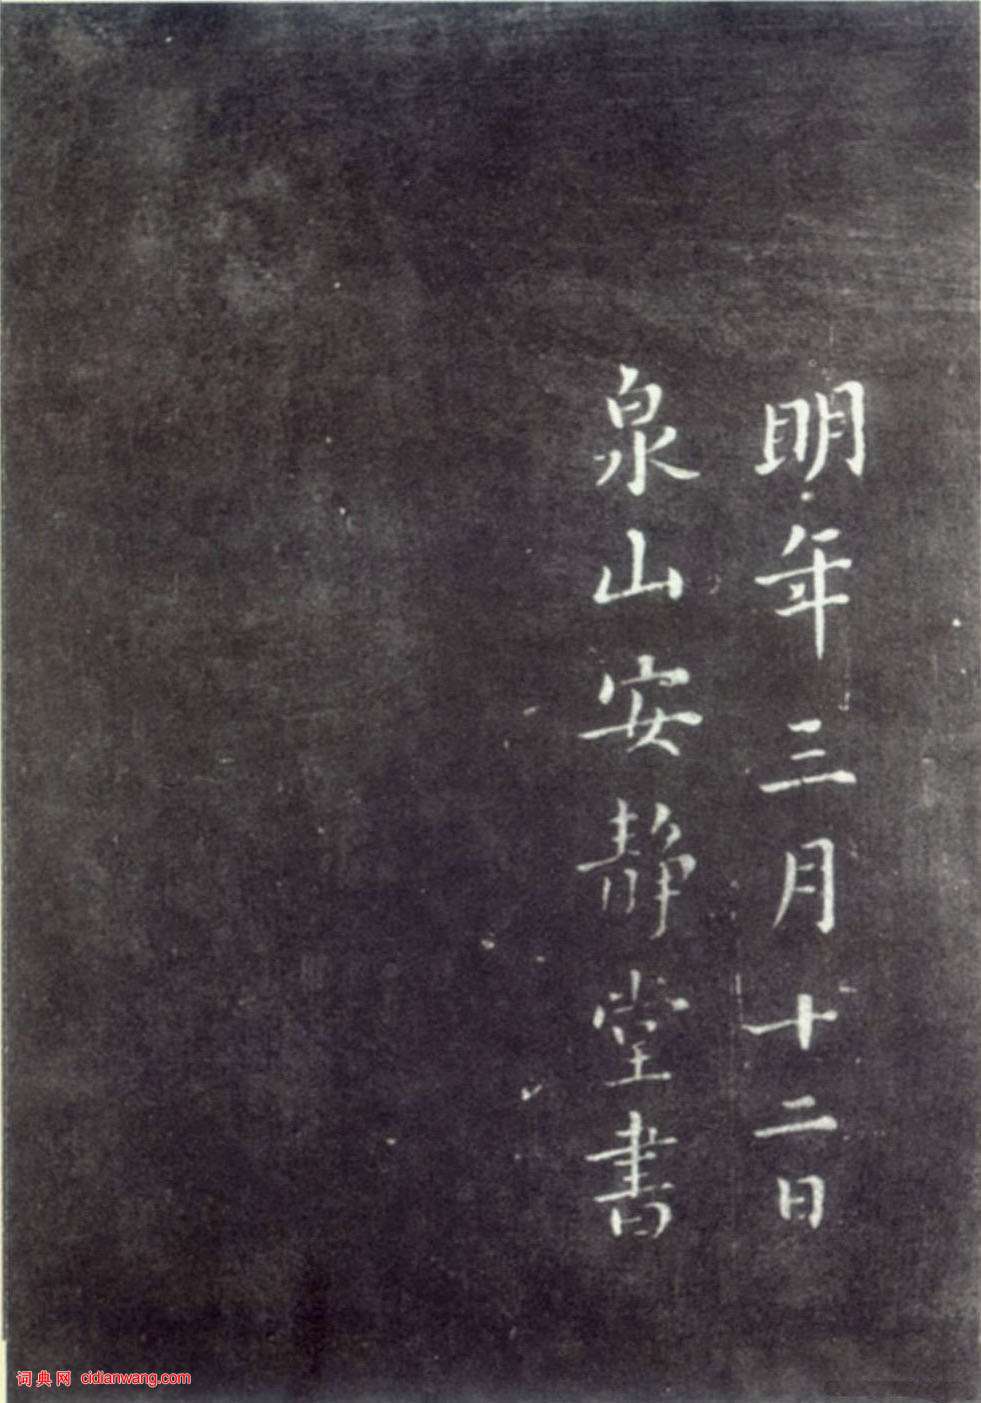 明年三月十二日
泉山安静堂書
词典网 cidianwang.com